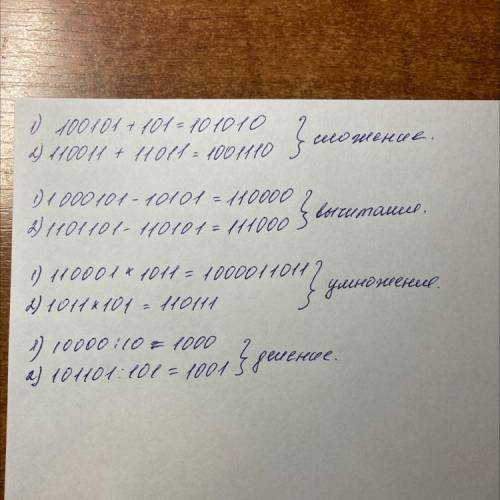 1) 100101 + 101 = 101010
2) 110011 + 11011 = 1001110 } сложение.
1) 1000101 - 10101 = 110000
2) 1101101 - 110101 = 111000 } вычитание.
1) 110001 × 1011 = 1000011011
2) 1011 × 101 = 110111 } умножение.
1) 10000 : 10 = 1000
2) 101101 : 101 = 1001 } деление.